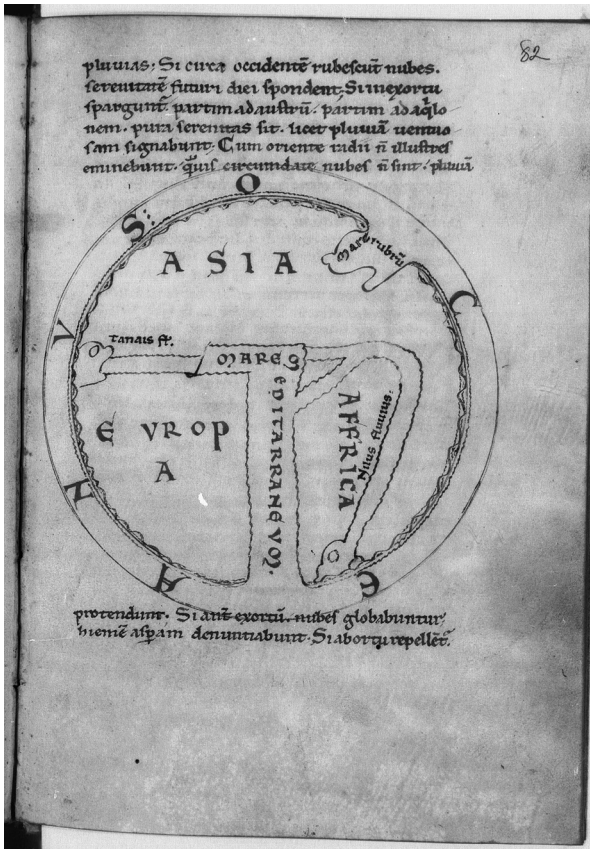 82
pluuias; Si circa occidentē rubescūt nubes.
serenitatē futuri diei spondent; Si in exortu
sparguntᷣ partim ad austrū. partim ad aqͥlo
nem. pura serenitas sit. licet pluuiā uento
sam signabunt; Cum oriente radii n̄ illustres
eminebunt. qͣuis circumdate nubes n̄ sint. pluuiā
O C E A H V S:
ASIA
Mare rubrū
Tanais fl.
MARE
EDITARRANEVM.
EVROP
A
AFFRICA
Nilus fluuius.
protendunt. Si ant̄ exortū. nubes globabuntur,
hiemē asp̄am denuntiabunt. Si ab ortu repellētᷣ.